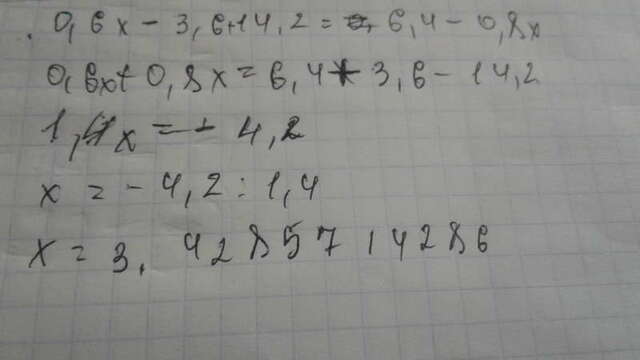 0,6x - 3,6+14,2 = 6,4 - 0,8x
0,6x + 0,8x = 6,4 + 3,6 - 14,2
1,4x = - 4,2
x = - 4,2 : 1,4
x = 3, 428571428 6